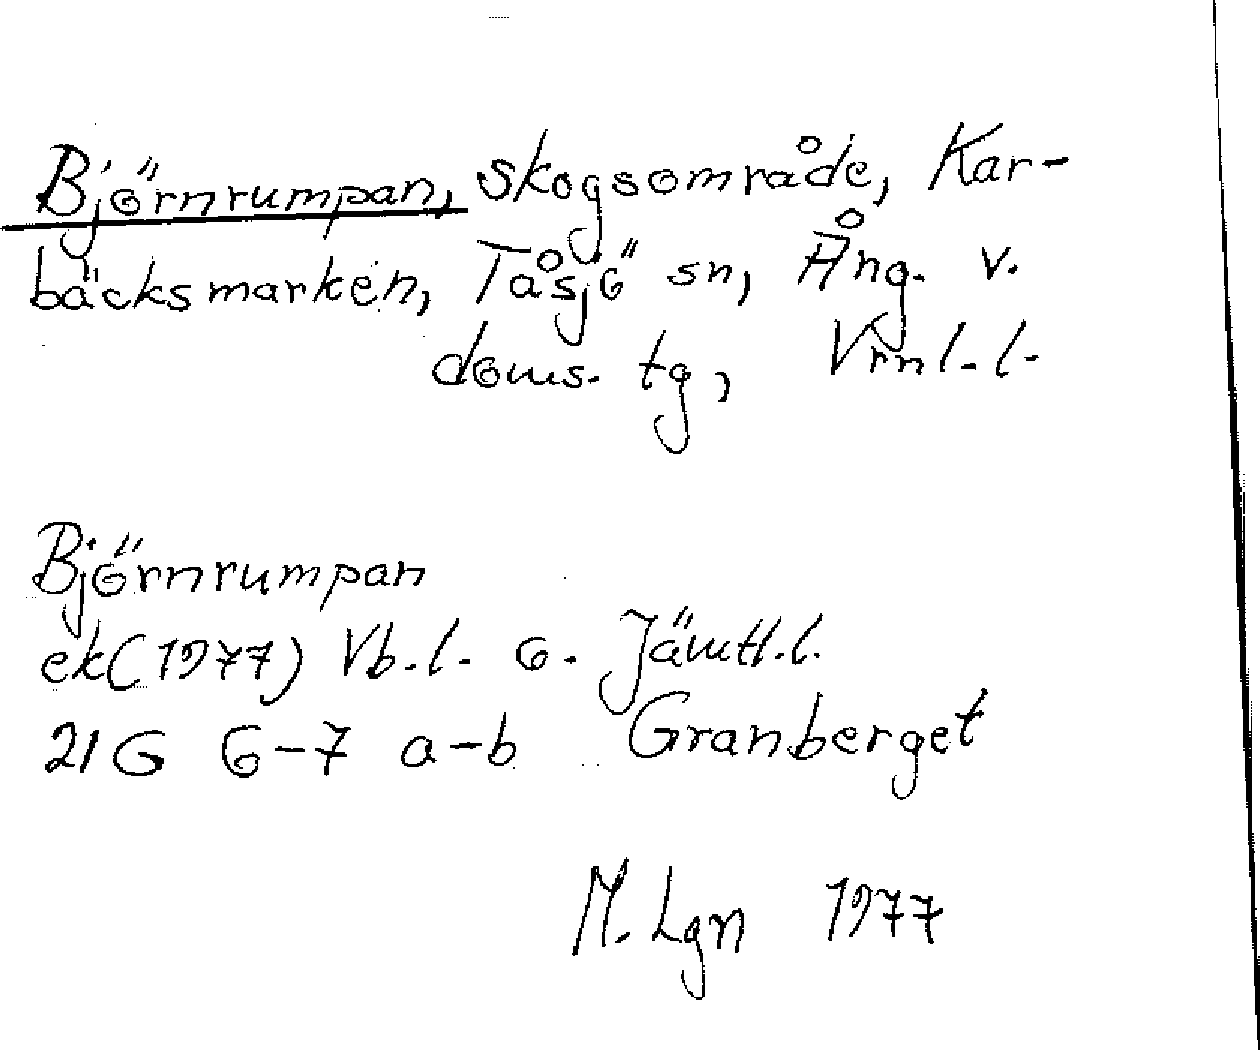 Björnrumpan, skogsområde, Kar-
bäcksmarken, Tåsjö sn, Ång. v.
doms. tg, Vrnl. l.
Björnrumpan
ek(1977) Vb. l. o. Jämtl. l.
21G 6-7 a-b Granberget
M. Lgn 1977